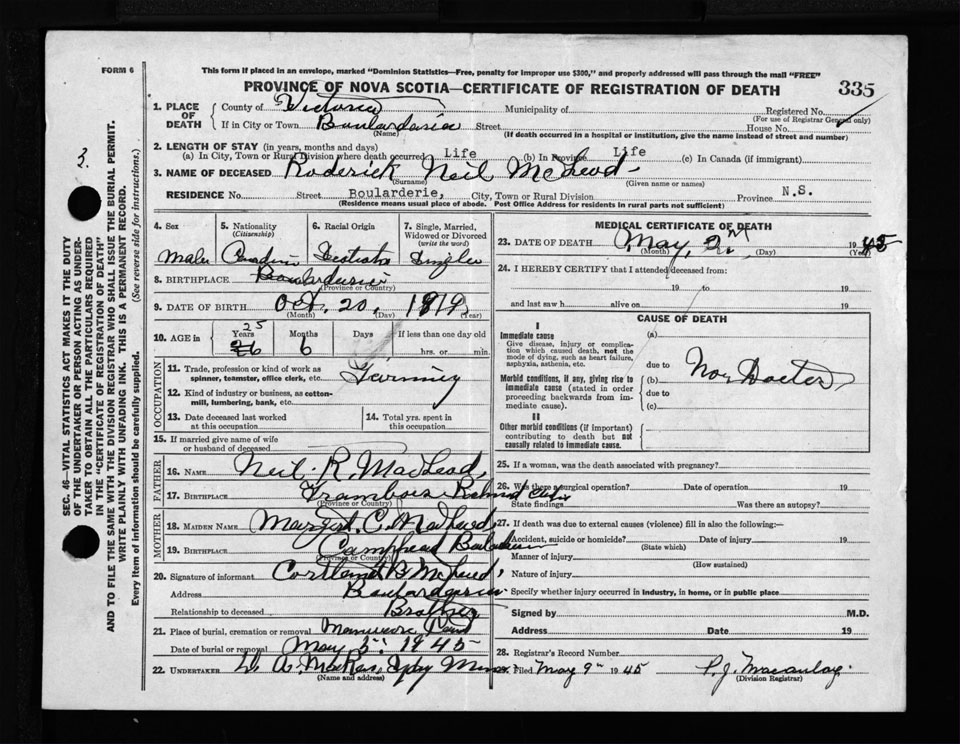 FORM 6
This form if placed in an envelope, marked "Dominion Statistics—Free, penalty for improper use $300," and properly addressed will pass through the mail "FREE"
PROVINCE OF NOVA SCOTIA—CERTIFICATE OF REGISTRATION OF DEATH
335
1. PLACE OF DEATH
County of Victoria Municipality of Registered No.
(For use of Registrar General only)
If in City or Town Boulardarie Street House No.
(Name) (If death occurred in a hospital or institution, give the name instead of street and number)
2. LENGTH OF STAY (in years, months and days)
(a) In City, Town or Rural Division where death occurred Life (b) In Province Life (c) In Canada (if immigrant)
3. NAME OF DECEASED Roderick Neil McLeod
(Surname) (Given name or names)
RESIDENCE No. Street Boularderie, City, Town or Rural Division Province N.S.
(Residence means usual place of abode. Post Office Address for residents in rural parts not sufficient)
4. Sex
Male
5. Nationality
(Citizenship)
6. Racial Origin
7. Single, Married, Widowed or Divorced
(write the word)
Single
8. BIRTHPLACE Boulardarie
(Province or Country)
9. DATE OF BIRTH Oct. 20, 1919
(Month) (Day) (Year)
10. AGE in
Years 25 26
Months 6
Days
If less than one day old
hrs. or min.
OCCUPATION
11. Trade, profession or kind of work as
spinner, teamster, office clerk, etc.
12. Kind of industry or business, as cotton-
mill, lumbering, bank, etc.
13. Date deceased last worked
at this occupation
14. Total yrs. spent in
this occupation
15. If married give name of wife
or husband of deceased
FATHER
16. NAME Neil R. MacLeod
17. BIRTHPLACE Framboise Richmond
(Province or Country)
MOTHER
18. MAIDEN NAME C. MacLeod
19. BIRTHPLACE
(Province or Country)
20. Signature of informant B McLeod
Address Boulardarie
Relationship to deceased Brother
21. Place of burial, cremation or removal
Date of burial or removal May 5" 1945
22. UNDERTAKER
(Name and address)
MEDICAL CERTIFICATE OF DEATH
23. DATE OF DEATH May, 2 1945
(Month) (Day) (Year)
24. I HEREBY CERTIFY that I attended deceased from:
19 to 19
and last saw h alive on 19
CAUSE OF DEATH
I
Immediate cause
Give disease, injury or complica-
tion which caused death, not the
mode of dying, such as heart failure,
asphyxia, asthenia, etc.
Morbid conditions, if any, giving rise to
immediate cause (stated in order
proceeding backwards from im-
mediate cause).
II
Other morbid conditions (if important)
contributing to death but not
causally related to immediate cause.
(a)
due to
(b) No Doctor
due to
(c)
25. If a woman, was the death associated with pregnancy?
26. Was there a surgical operation? Date of operation 19
State findings Was there an autopsy?
27. If death was due to external causes (violence) fill in also the following:—
Accident, suicide or homicide? Date of injury 19
(State which)
Manner of injury
(How sustained)
Nature of injury
Specify whether injury occurred in industry, in home, or in public place
Signed by M.D.
Address Date 19
28. Registrar's Record Number
Filed May 9" 1945
(Division Registrar)
3.
SEC. 46—VITAL STATISTICS ACT MAKES IT THE DUTY
OF THE UNDERTAKER OR PERSON ACTING AS UNDER-
TAKER TO OBTAIN ALL THE PARTICULARS REQUIRED
IN THE "CERTIFICATE OF REGISTRATION OF DEATH"
AND TO FILE THE SAME WITH THE DIVISION REGISTRAR WHO SHALL ISSUE THE BURIAL PERMIT.
WRITE PLAINLY WITH UNFADING INK. THIS IS A PERMANENT RECORD.
Every item of information should be carefully supplied. (See reverse side for instructions.)